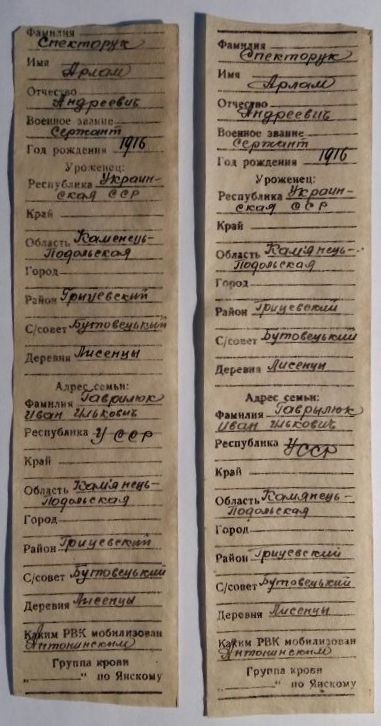 Фамилия Спекторук
Имя Арлам
Отчество Андреевич
Военное звание Сержант
Год рождения 1916
Уроженец:
Республика Украин-
ская ССР
Край
Область Каменець-
Подольская
Город
Район Грицевский
С/совет Бутовецький
Деревня Лисенцы
Адрес семьи:
Фамилия Гаврилюк
Иван Илькович
Республика УССР
Край
Область Кам'янець-
Подольская
Город
Район Грицевский
С/совет Бутовецький
Деревня Лисенцы
Каким РВК мобилизован
Антонинским
Группа крови
„ “ по Янскому
Фамилия Спекторук
Имя Арлам
Отчество Андреевич
Военное звание
Сержант
Год рождения 1916
Уроженец:
Республика Украин-
ская ССР
Край
Область Кам'янець-
Подольская
Город
Район Грицевский
С/совет Бутовецький
Деревня Лисенцы
Адрес семьи:
Фамилия Гаврылюк
Иван Илькович
Республика УССР
Край
Область Камянець-
Подольская
Город
Район Грицевский
С/совет Бутовецький
Деревня Лисенцы
Каким РВК мобилизован
Антонинским
Группа крови
„ “ по Янскому